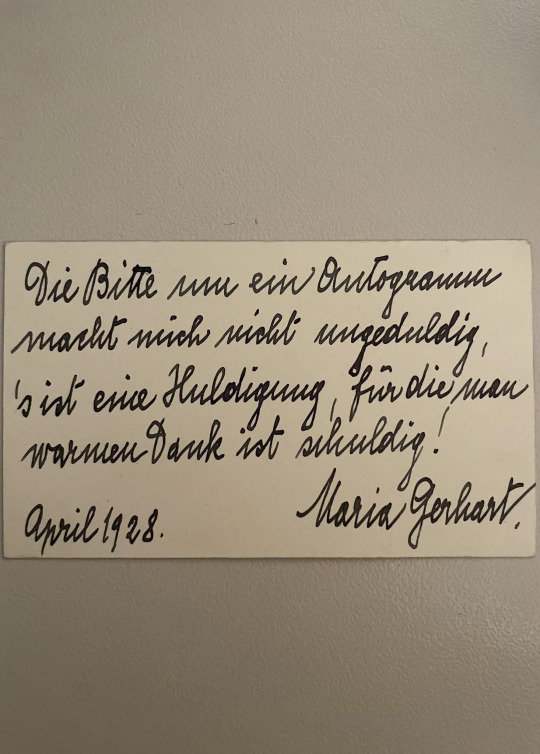 Die Bitte um ein Autogramm
macht mich nicht ungeduldig,
's ist eine Huldigung, für die man
warmen Dank ist schuldig!
Maria Gerhart.
April 1928.